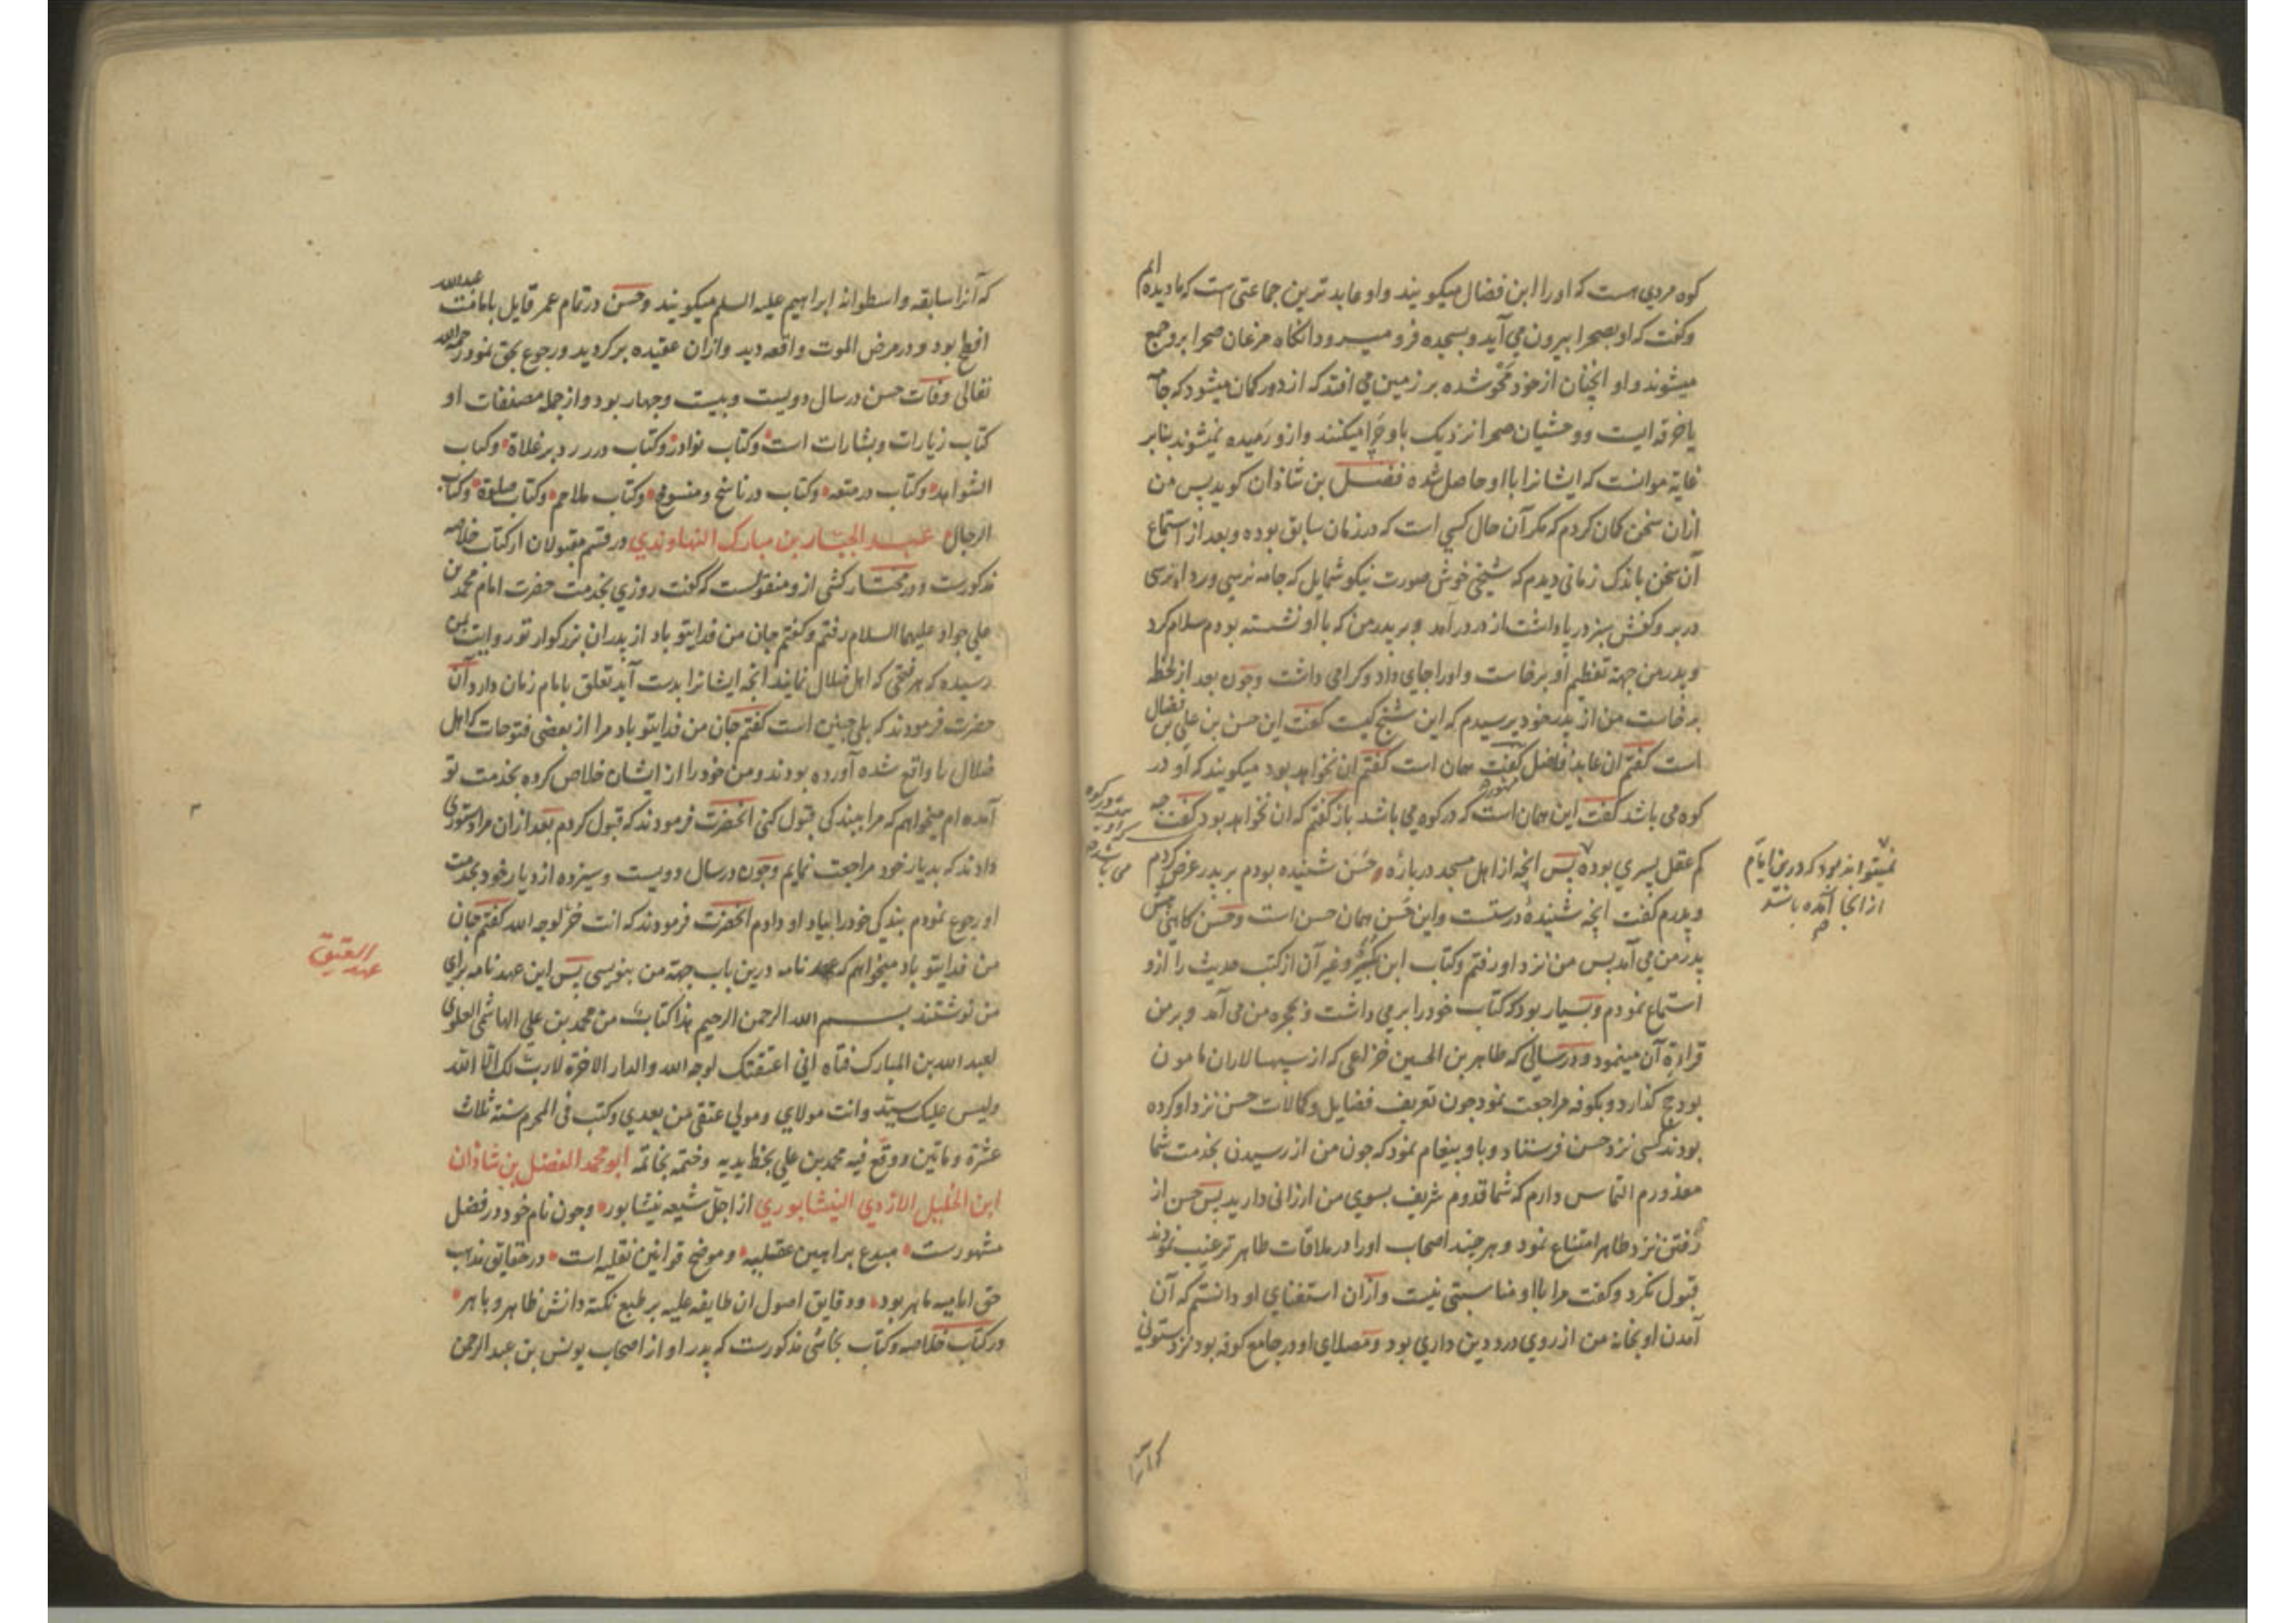 کوه مردی هست که او را ابن فضال میکویند و او عابد ترین جماعتی است که ما دیده ایم
وکفت که او بصحرا بیرون می آید و بسجده فرو میرود انکاه مرغان صحرا برو جمع
میشوند و او انچنان از خود محو شده بر زمین می افتد که از دور کمان میشود که جامه
یا خرقه ایست و وحشیان صحرا نزدیک باو چرا میکنند و ازو رمیده نمیشوند بنابر
غایة موانست که ایشانرا با او حاصل شده فضل بن شاذان کوید پس من
ازان سخن کمان کردم که مکر آن حال کسی است که در زمان سابق بوده و بعد از استماع
آن سخن باندک زمانی دیدم که شیخی خوش صورت نیکو شمایل که جامه نرسی و رداء نرسی
در بر و کفش سبز در پا داشت از در درآمد و بر پدر من که با او نشسته بودم سلام کرد
و پدر من جهة تعظیم او برخاست و او را جای داد و کرامی داشت و چون بعد از لحظه
برخاست من از پدر خود پرسیدم که این شیخ کیست کفت این حسن بن علی بن فضال
است کفتم ان عابد فاضل کفت همان است کفتم ان نخواهد بود میکویند که او در
کوه می باشد کفت این همان است که در کوه می باشد باز کفتم که ان نخواهد بود کفت چه
کم عقل پسری بوده پس انچه از اهل مسجد درباره حسن شنیده بودم بر پدر عرض کردم
نمیتواند بود که درین ایام
از انجا آمده باشد
و پدرم کفت انچه شنیدهٔ درست و این حسن همان حسن است و حسن کاهی پیش
پدر من می آمد پس من نزد او رفتم و کتاب ابن بکیر و غیر آن از کتب حدیث را ازو
استماع نمودم و بسیار بود که کتاب خود را برمی داشت و بحجره من می آمد و بر من
قراءة آن مینمود و در سالی که طاهر بن الحسین خزاعی که از سپهسالاران مامون
بود حج کذارد و بکوفه مراجعت نمود چون تعریف فضایل و کمالات حسن نزد او کرده
بودند کسی نزد حسن فرستاد و باو پیغام نمود که چون من از رسیدن بخدمت شما
معذورم التماس دارم که شما قدوم شریف بسوی من ارزانی دارید پس حسن از
رفتن نزد طاهر امتناع نمود و هر چند اصحاب او را در ملاقات طاهر ترغیب نمودند
قبول نکرد و کفت مرا با او مناسبتی نیست و ازان استغنای او دانستم که آن
آمدن او بخانه من از روی درد دین داری بود و مصلای او در جامع کوفه بود نزد ستونی
که آنرا
که آنرا سابقه و اسطوانه ابراهیم علیه السلم میکویند و حسن در تمام عمر قایل بامامت عبدالله
افطح بود و در مرض الموت واقعه دید و ازان عقیده برکردید و رجوع بحق نمود رحمه الله
تعالی وفات حسن در سال دویست و بیست و چهار بود و از جمله مصنفات او
کتاب زیارات و بشارات است و کتاب نوادر و کتاب در رد بر غلاة و کتاب
الشواهد و کتاب در متعه و کتاب در ناسخ و منسوخ و کتاب ملاحم و کتاب صلوة و کتاب
الرجال عبد الجبار بن مبارک النهاوندی در قسم مقبولان از کتاب خلاصه
مذکورست و در مختار کشی ازو منقولست که کفت روزی بخدمت حضرت امام محمد بن
علی جواد علیهما السلام رفتم و کفتم جان من فدای تو باد از پدران بزرکوار تو روایت بمن
رسیده که هر فتحی که اهل ضلال نمایند انچه ایشانرا بدست آید تعلق بامام زمان دارد آن
حضرت فرمودند که بلی چنین است کفتم جان من فدایتو باد مرا از بعضی فتوحات که اهل
ضلال را واقع شده آورده بودند و من خود را از ایشان خلاص کرده بخدمت تو
آمده ام میخواهم که مرا ببندکی قبول کنی انحضرت فرمودند که قبول کردم بعد ازان مرا دستوری
دادند که بدیار خود مراجعت نمایم و چون در سال دویست و سیزده از دیار خود بخدمت
او رجوع نمودم بندکی خود را بیاد او دادم انحضرت فرمودند که انت حر لوجه الله کفتم جان
من فدایتو باد میخواهم که عهد نامه درین باب جهة من بنویسی پس این عهد نامه برای
عهد
العتیق
من نوشتند بسم الله الرحمن الرحیم هذا کتاب من محمد بن علی الهاشمی العلوی
لعبد الله بن المبارک فتاه انی اعتقتک لوجه الله والدار الاخرة لا رب لک الا الله
ولیس علیک سید وانت مولای ومولی عقبی من بعدی وکتب فی المحرم سنة ثلاث
عشرة وماتین ووقع فیه محمد بن علی بخط یدیه وختمه بخاتمه ابو محمد الفضل بن شاذان
ابن الخلیل الازدی النیشابوری از اجل شیعه نیشابور و چون نام خود در فضل
مشهورست مبدع براهین عقلیه و موضح قوانین نقلیه است در حقایق مذهب
حق امامیه ماهر بود و دقایق اصول ان طایفه علیه بر طبع نکته دانش ظاهر و باهر
در کتاب خلاصه و کتاب نجاشی مذکورست که پدر او از اصحاب یونس بن عبد الرحمن